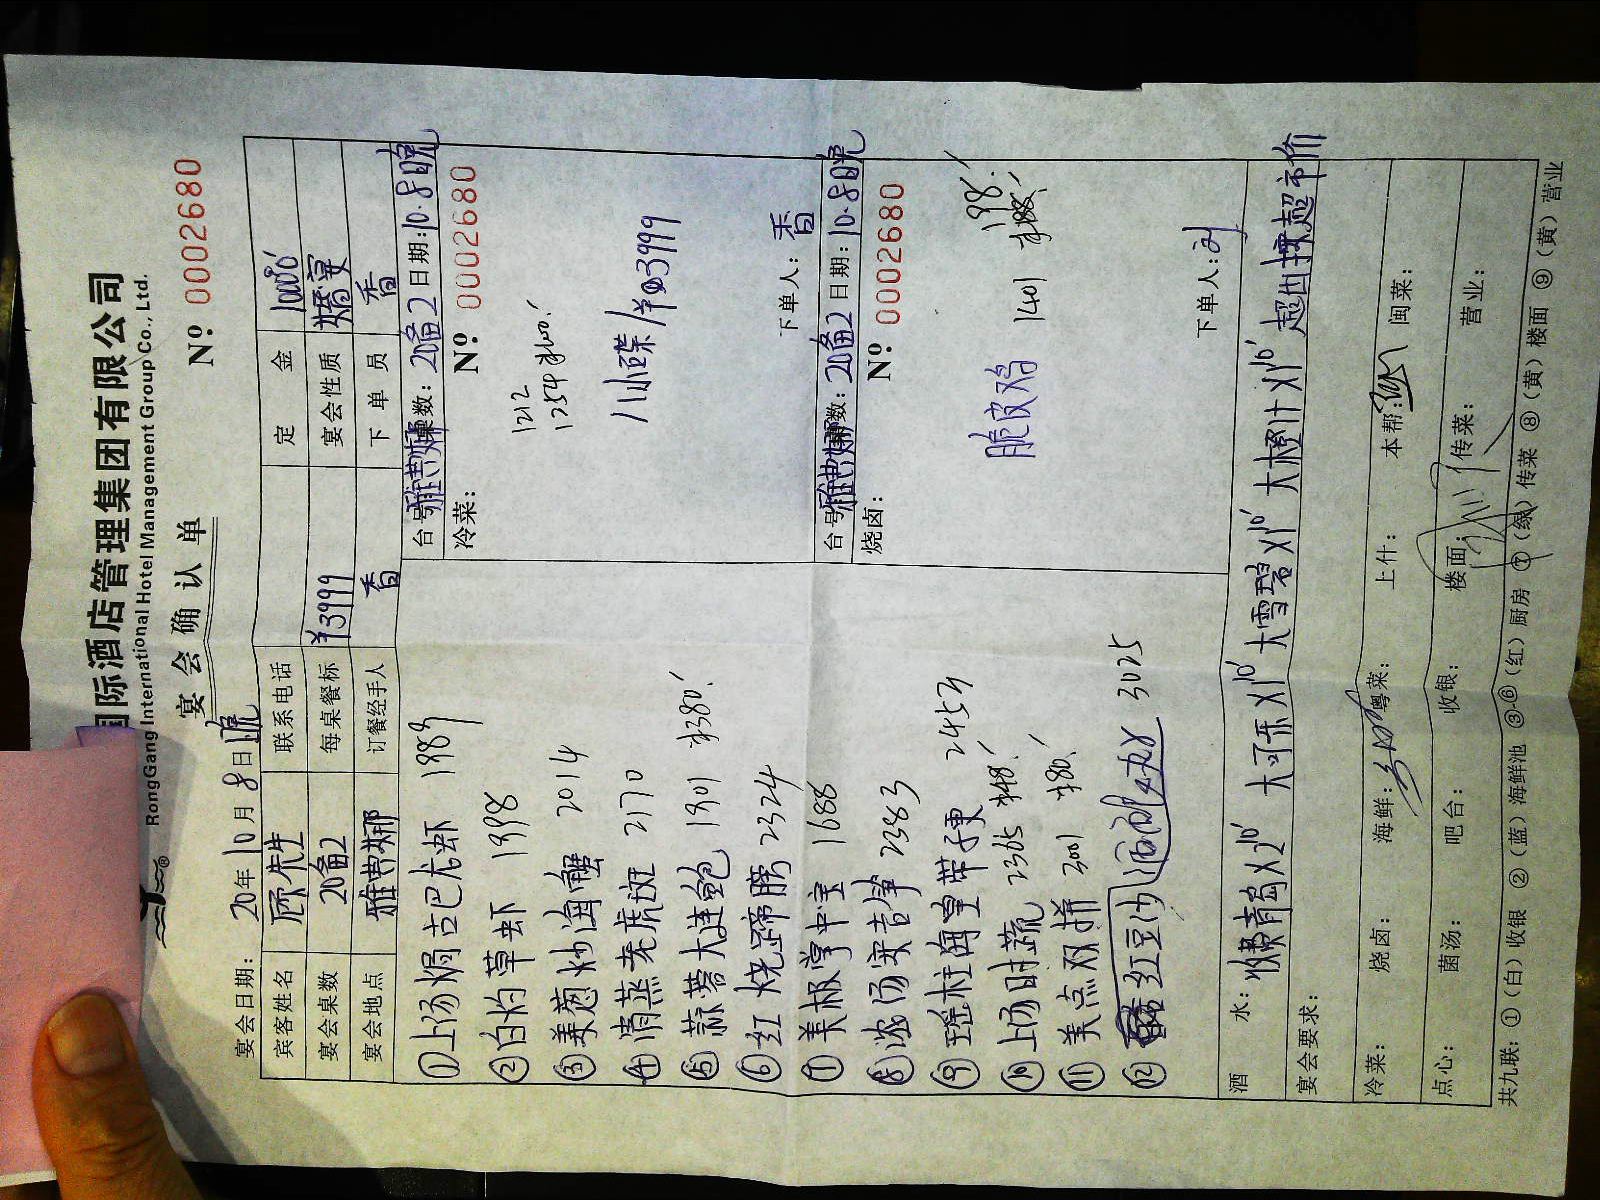 国际酒店管理集团有限公司
RongGang International Hotel Management Group Co., Ltd.
宴会确认单
№ 0002680
宴会日期: 20年10月8日晚
宾客姓名 顾先生 联系电话 定金
宴会桌数 20备2 每桌餐标 ¥3999 宴会性质 婚宴
宴会地点 雅典娜 订餐经手人 香 下单员 香
①上汤焗古巴龙虾 1989
②白灼草虾 1998
③姜葱炒海蟹 2014
④清蒸老虎斑 2170
⑤蒜蓉大连鲍 1901 380!
⑥红烧蹄膀 2324
⑦美极掌中宝 1688
⑧浓汤安吉笋 2383
⑨瑶柱海皇带子更 2454
⑩上汤时蔬 2365
⑪美点双拼 3001
⑫红豆沙 3025
台号: 雅典娜 桌数: 20备2 日期: 10.8晚
冷菜: № 0002680
1212
1254
八小碟/ 3999
下单人: 香
台号: 雅典娜 桌数: 20备2 日期: 10.8晚
烧卤: № 0002680
脆皮鸡 1401 198!
下单人: 刘
酒水: 青岛X20' 大可乐X10' 大雪碧X10' 大橙汁X10' 超出按超市价
宴会要求:
冷菜: 烧卤: 海鲜: 粤菜: 上什: 本帮: 闽菜:
点心: 菌汤: 吧台: 收银: 楼面: 传菜: 营业:
共九联: ①(白)收银 ②(蓝)海鲜池 ③-⑥(红)厨房 ⑦(绿)传菜 ⑧(黄)楼面 ⑨(黄)营业